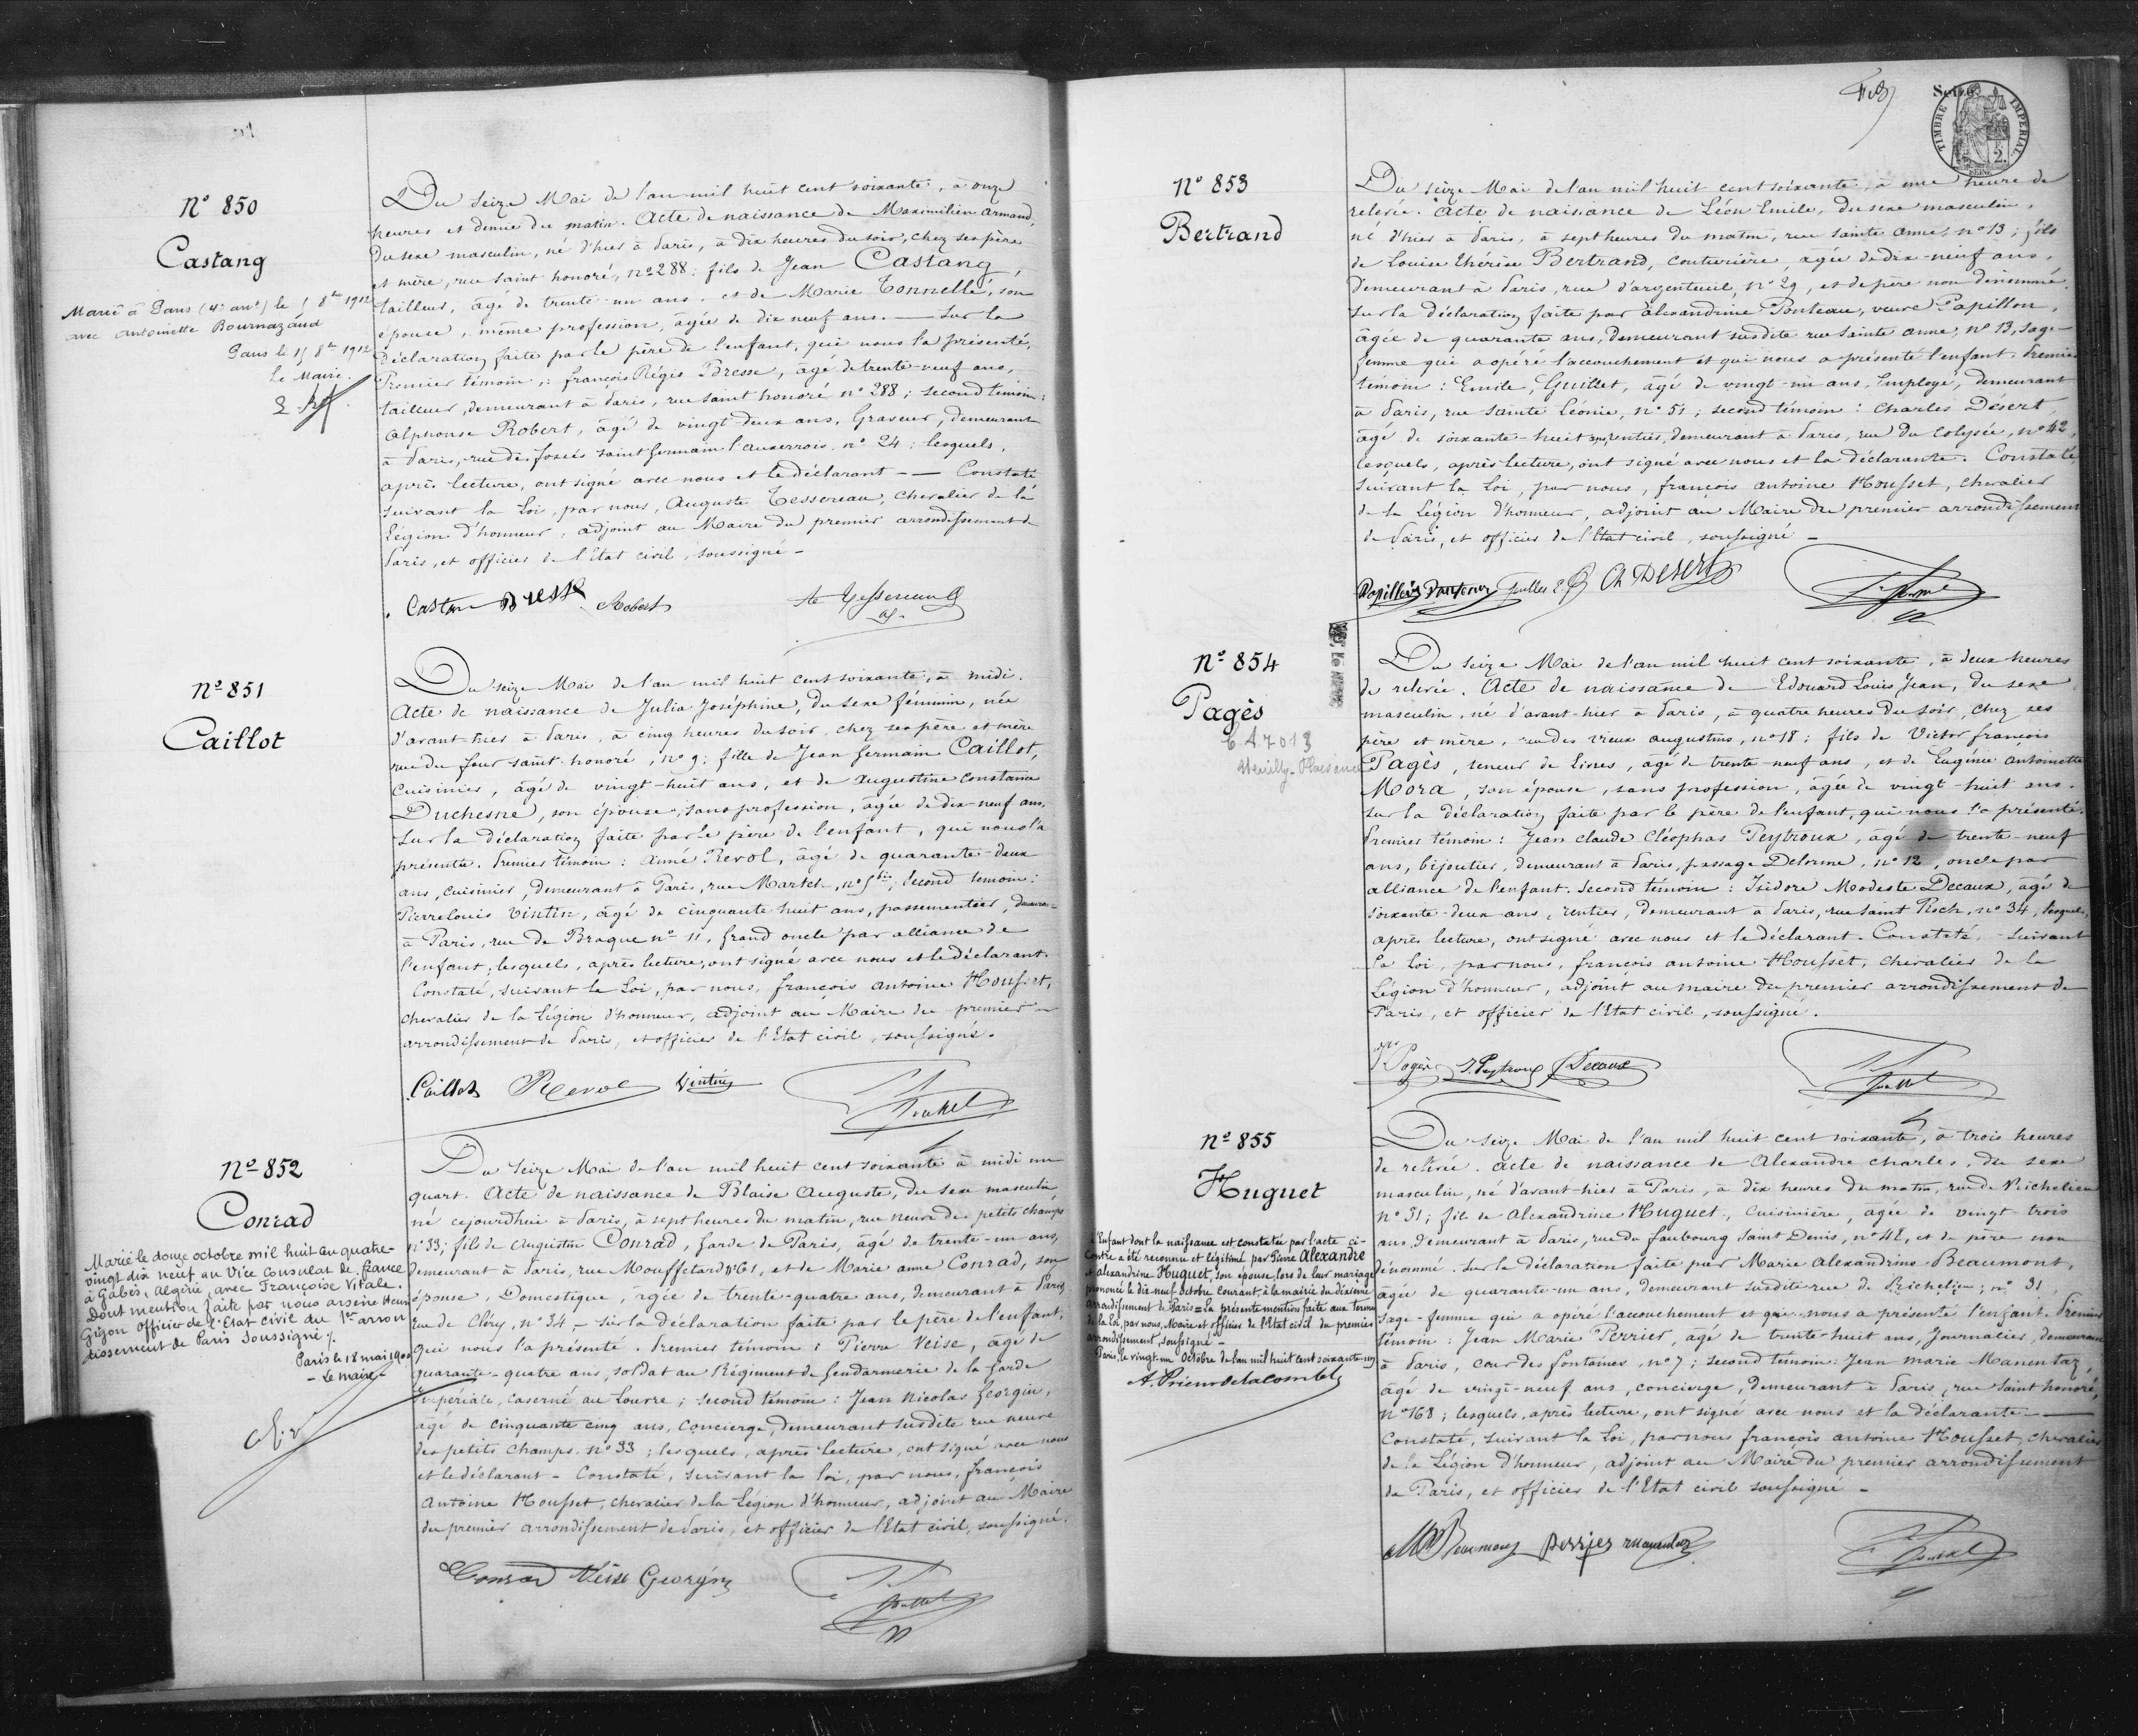 N° 850
Castang
Marié à Paris (4e arrt) le 8bre 1912
avec Antoinette Bournazaud
Paris le 15 8bre 1912
Le Maire.
Du seize Mai de l'an mil huit cent soixante, à onze
heures et demie du matin. Acte de naissance de Maximilien Armand,
du sexe masculin, né d'hier à Paris, à dix heures du soir, chez ses père
et mère, rue saint honoré, n° 288; fils de Jean Castang,
tailleur, âgé de trente-un ans, et de Marie Tonnellé, son
épouse, même profession, âgée de dix neuf ans. — Sur la
déclaration faite par le père de l'enfant, qui nous l'a présenté.
Premier témoin: françois Régis Bresse, âgé de trente-neuf ans,
tailleur, demeurant à Paris, rue saint honoré n° 288; second témoin:
Alphonse Robert, âgé de vingt-deux ans, Graveur, demeurant
à Paris, rue des fossés saint Germain l'auxerrois, n° 24; lesquels,
après lecture, ont signé avec nous et le déclarant — Constaté
suivant la Loi, par nous, Auguste Tessereau, chevalier de la
Légion d'honneur, adjoint au Maire du premier arrondissement de
Paris, et officier de l'Etat civil, soussigné —
Castan Bresse Robert Ate Tessereau
adj.
N° 851
Caillot
Du seize Mai de l'an mil huit cent soixante, à midi.
Acte de naissance de Julia Joséphine, du sexe féminin, née
d'avant-hier à Paris, à cinq heures du soir, chez ses père et mère
rue du four saint-honoré, n° 9; fille de Jean Germain Caillot,
cuisinier, âgé de vingt-huit ans, et de Augustine Constance
Duchesne, son épouse, sans profession, âgée de dix-neuf ans.
Sur la déclaration faite par le père de l'enfant, qui nous l'a
présentée. Premier témoin: Aimé Revol, âgé de quarante-deux
ans, cuisinier, demeurant à Paris, rue Martel, n° 5 bis; second temoin:
Pierre Louis Vintin, âgé de cinquante huit ans, passementier, demeurant
à Paris, rue de Braque n° 11, Grand oncle par alliance de
l'enfant; lesquels, après lecture, ont signé avec nous et le déclarant.
Constaté, suivant la Loi, par nous, françois antoine Housset,
chevalier de la Légion d'honneur, adjoint au Maire du premier
arrondissement de Paris, et officier de l'Etat civil, soussigné.
Caillot Revol Vintin Housset
N° 852
Conrad
Marié le douze octobre mil huit cent quatre-
vingt dix neuf au Vice Consulat de france
à Gabès, Algérie, avec Françoise Vitale.
Dont mention faite par nous arsène Henri
Gizon officier de l'Etat civil du 1er arron
dissement de Paris soussigné /.
Paris le 18 mai 1900
- Le maire -
Du seize Mai de l'an mil huit cent soixante à midi un
quart. Acte de naissance de Blaise Auguste, du sexe masculin,
né cejourdhui à Paris, à sept heures du matin, rue neuve des petits champs
n° 33; fils de Augustin Conrad, Garde de Paris, âgé de trente-un ans,
demeurant à Paris, rue Mouffetard n° 61, et de Marie anne Conrad, son
épouse, Domestique, âgée de trente-quatre ans, demeurant à Paris
rue de Cléry, n° 34 — sur la déclaration faite par le père de l'enfant,
qui nous l'a présenté. Premier témoin: Pierre Veise, âgé de
quarante-quatre ans, soldat au Régiment de Gendarmerie de la Garde
Impériale, caserné au Louvre; second témoin: Jean Nicolas Georgin,
âgé de cinquante cinq ans, concierge, demeurant susdite rue neuve
des petits champs n° 33; lesquels, après lecture, ont signé avec nous
et le déclarant — Constaté, suivant la loi, par nous, françois
Antoine Housset, chevalier de la Légion d'honneur, adjoint au Maire
du premier arrondissement de Paris, et officier de l'Etat civil, soussigné.
Conrad Veise Georgin Housset
Seine
TIMBRE IMPERIAL
2.
SEINE
N° 853
Bertrand
Du seize Mai de l'an mil huit cent soixante, à une heure de
relevée. Acte de naissance de Léon Emile, du sexe masculin,
né d'hier à Paris, à sept heures du matin, rue sainte Anne, n° 13; fils
de Louise Thérèse Bertrand, couturière, âgée de dix-neuf ans,
demeurant à Paris, rue d'argenteuil, n° 29, et de père non dénommé.
Sur la déclaration faite par Alexandrine Ponteau, veuve Papillon,
âgée de quarante ans, demeurant susdite rue Sainte anne, n° 13, sage-
femme qui a opéré l'accouchement et qui nous a présenté l'enfant. Premier
témoin: Emile Guillet, âgé de vingt-un ans, Employé, demeurant
à Paris, rue Sainte Léonie, n° 51; second témoin: Charles Désert,
âgé de soixante-huit ans, rentier, demeurant à Paris, rue du Colysée, n° 42,
lesquels, après lecture, ont signé avec nous et la déclarante. Constaté,
suivant la Loi, par nous, françois antoine Housset, chevalier
de la Légion d'honneur, adjoint au Maire du premier arrondissement
de Paris, et officier de l'Etat civil, soussigné —
Ch Desert Housset
N° 854
Pagès
Neuilly-Plaisance
Du seize Mai de l'an mil huit cent soixante, à deux heures
de relevée. Acte de naissance de Edouard Louis Jean, du sexe
masculin, né d'avant-hier à Paris, à quatre heures du soir, chez ses
père et mère, rue des vieux augustins, n° 18; fils de Victor françois
Pagès, teneur de Livres, âgé de trente-neuf ans, et de Eugénie antoinette
Mora, son épouse, sans profession, âgée de vingt-huit ans.
Sur la déclaration faite par le père de l'enfant, qui nous l'a présenté.
Premier témoin: Jean Claude Cléophas Peytroux, âgé de trente-neuf
ans, bijoutier, demeurant à Paris, passage Delorme, n° 12, oncle par
alliance de l'enfant. Second témoin: Isidore Modeste Decaux, âgé de
soixante-deux ans, rentier, demeurant à Paris, rue Saint Roch, n° 34, lesquels,
après lecture, ont signé avec nous et le déclarant. Constaté, suivant
la Loi, par nous, françois antoine Housset, chevalier de la
Légion d'honneur, adjoint au maire du premier arrondissement de
Paris, et officier de l'Etat civil, soussigné.
Pagès J. Peytroux Decaux Housset
N° 855
Huguet
L'Enfant dont la naissance est constatée par l'acte ci-
contre a été reconnu et légitimé par Pierre Alexandre
et alexandrine Huguet, son épouse, lors de leur mariage
prononcé le dix-neuf Octobre courant à la mairie du dixième
arrondissement de Paris = La présente mention faite aux termes
de la Loi, par nous, Maire et officier de l'Etat civil du premier
arrondissement, soussigné —
Paris, le vingt-un Octobre de l'an mil huit cent soixante-un
A. Prieur de la Comble
Du seize Mai de l'an mil huit cent soixante, à trois heures
de relevée. Acte de naissance de Alexandre Charles, du sexe
masculin, né d'avant-hier à Paris, à dix heures du matin, rue de Richelieu
n° 31; fils de Alexandrine Huguet, Cuisinière, âgée de vingt-trois
ans, demeurant à Paris, rue du faubourg Saint Denis, n° 48, et de père non
dénommé. Sur la déclaration faite par Marie Alexandrine Beaumont,
âgée de quarante-un ans, demeurant susdite rue de Richelieu, n° 31,
sage-femme qui a opéré l'accouchement et qui nous a présenté l'enfant. Premier
témoin: Jean Marie Perrier, âgé de trente-huit ans, Journalier, demeurant
à Paris, cour des fontaines, n° 7; second témoin: Jean Marie Manentaz,
âgé de vingt-neuf ans, concierge, demeurant à Paris, rue Saint honoré,
n° 168; lesquels, après lecture, ont signé avec nous et la déclarante —
Constaté, suivant la Loi, par nous françois antoine Housset, chevalier
de la Légion d'honneur, adjoint au Maire du premier arrondissement
de Paris, et officier de l'Etat civil soussigné —
Beaumont Perrier Manentaz Housset